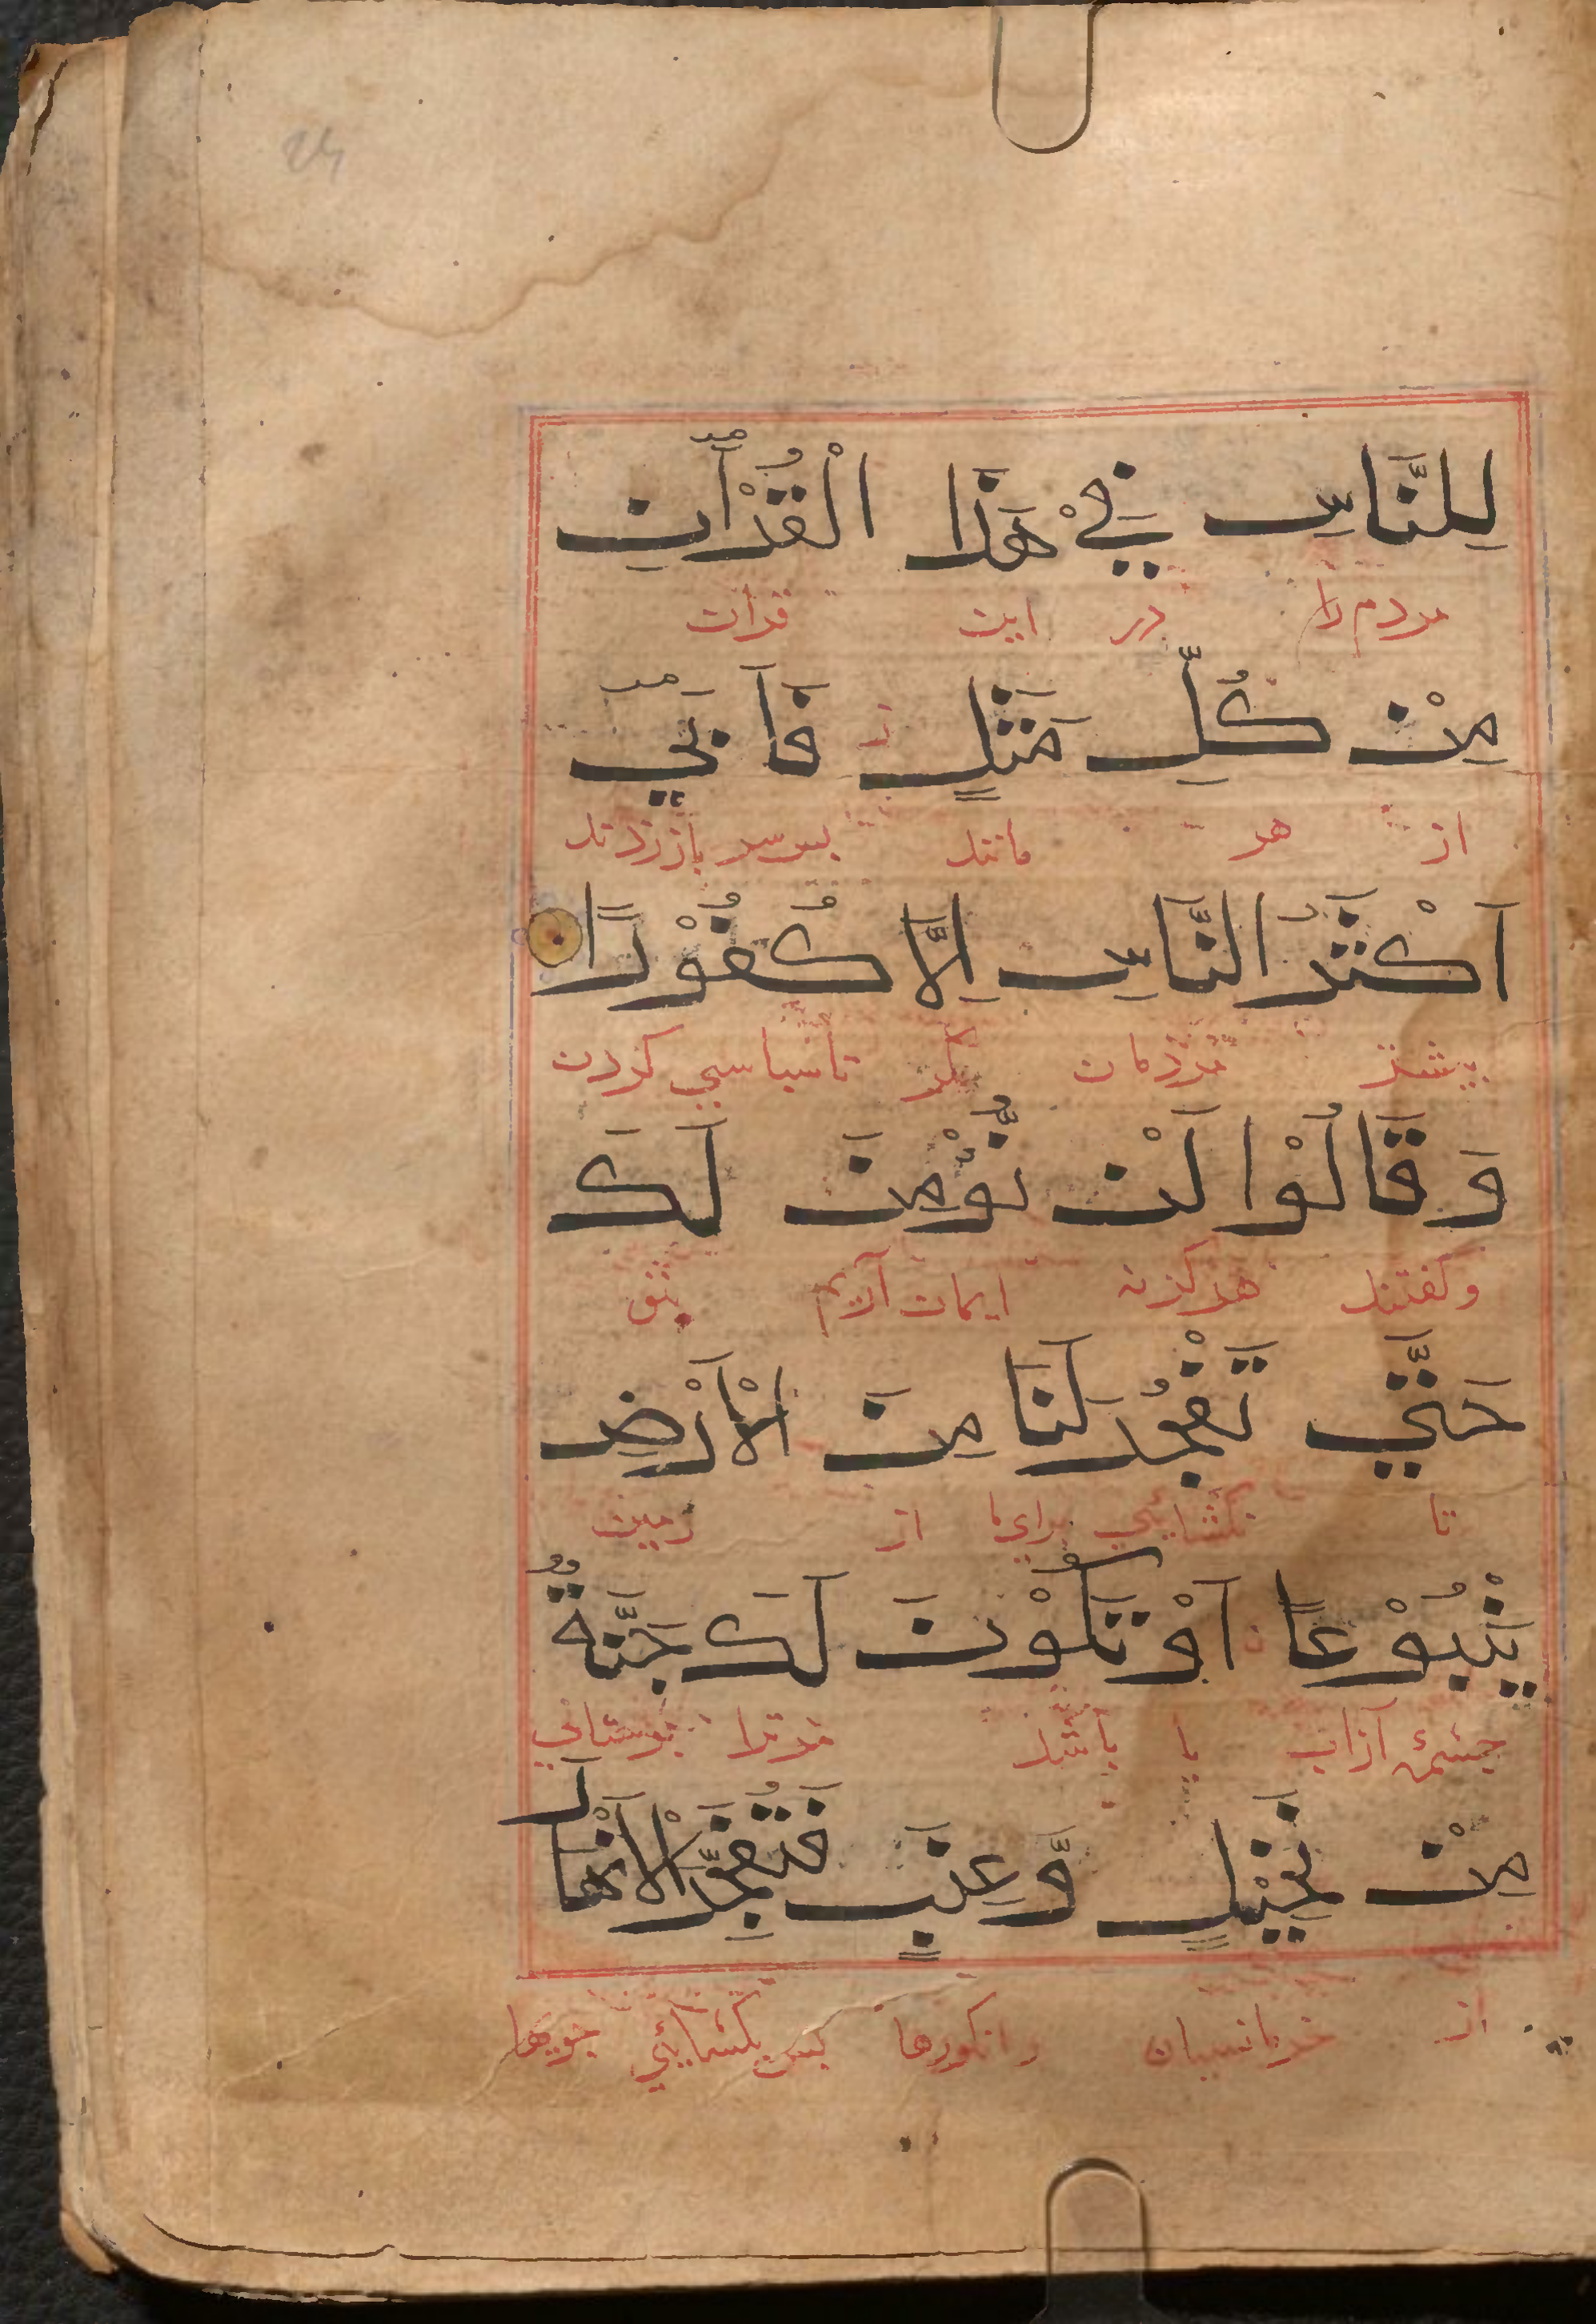 لِلنَّاسِ فِيْ هٰذَا الْقُرْاٰنِ
مردم را در این قرآن
مِنْ كُلِّ مَثَلٍ فَاَبٰيٓ
از هر مانند باز زدند
اَكْثَرُ النَّاسِ اِلَّا كُفُوْرًا
بیشتر مردمان مگر ناسپاسی کردن
وَقَالُوْا لَنْ نُّؤْمِنَ لَكَ
وگفتند هرگز نه ایمان آریم بتو
حَتّٰي تَفْجُرَ لَنَا مِنَ الْاَرْضِ
تا بگشایي برای ما از زمین
يَنْبُوْعًا اَوْ تَكُوْنَ لَكَ جَنَّةٌ
چشمۀ از آب یا باشد مر ترا بوستانی
مِنْ نَّخِيْلٍ وَّعِنَبٍ فَتُفَجِّرَ الْاَنْهٰارَ
از خرماستان وانگورها پس بگشائی جویها